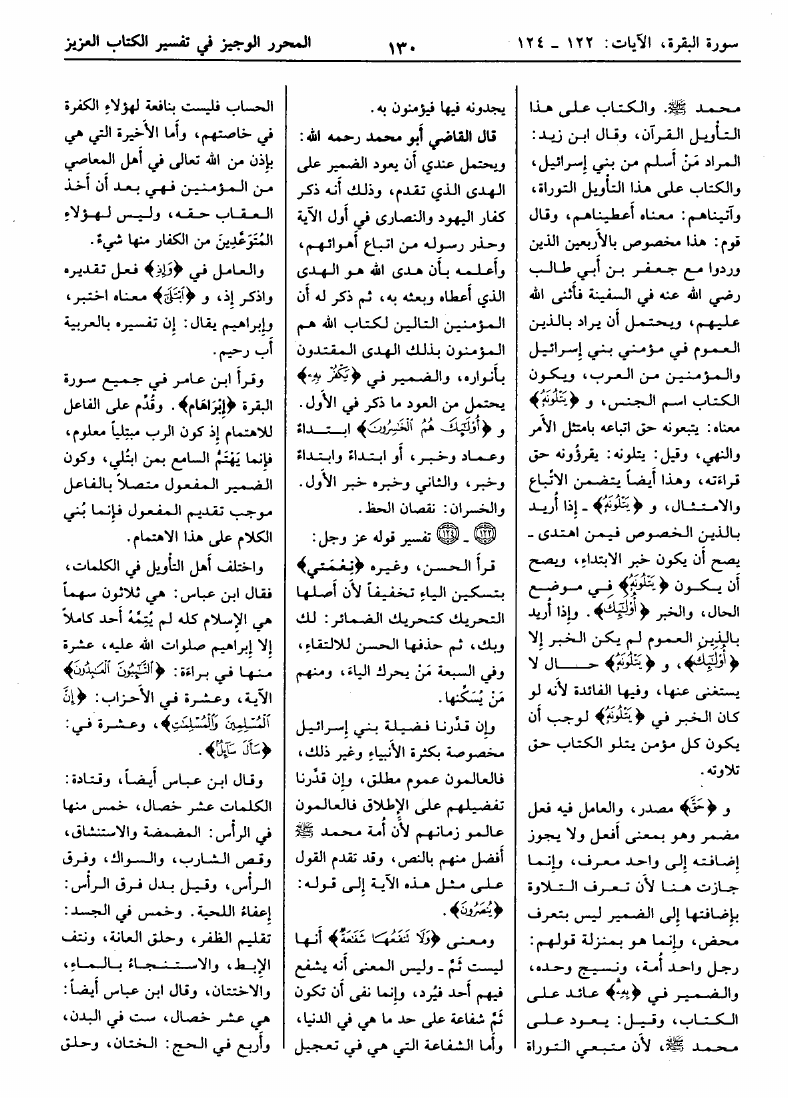 سورة البقرة، الآيات: ١٢٢ - ١٢٤
١٣٠
المحرر الوجيز في تفسير الكتاب العزيز
محمد ﷺ. والكتاب على هذا
التأويل القرآن، وقال ابن زيد:
المراد مَنْ أسلم من بني إسرائيل،
والكتاب على هذا التأويل التوراة،
وآتيناهم: معناه أعطيناهم، وقال
قوم: هذا مخصوص بالأربعين الذين
وردوا مع جعفر بن أبي طالب
رضي الله عنه في السفينة فأثنى الله
عليهم، ويحتمل أن يراد بالذين
العموم في مؤمني بني إسرائيل
والمؤمنين من العرب، ويكون
الكتاب اسم الجنس، و ﴿يَتْلُونَهُ﴾
معناه: يتبعونه حق اتباعه بامتثل الأمر
والنهي، وقيل: يتلونه: يقرؤونه حق
قراءته، وهذا أيضاً يتضمن الاتّباع
والامتثال، و ﴿يَتْلُونَهُ﴾ - إذا أريد
بالذين الخصوص فيمن اهتدى -
يصح أن يكون خبر الابتداء، ويصح
أن يكون ﴿يَتْلُونَهُ﴾ في موضع
الحال، والخبر ﴿أُوْلَٰٓئِكَ﴾. وإذا أريد
بالذين العموم لم يكن الخبر إلا
﴿أُوْلَٰٓئِكَ﴾، و ﴿يَتْلُونَهُ﴾ حال لا
يستغنى عنها، وفيها الفائدة لأنه لو
كان الخبر في ﴿يَتْلُونَهُ﴾ لوجب أن
يكون كل مؤمن يتلو الكتاب حق
تلاوته.
و ﴿حَقَّ﴾ مصدر، والعامل فيه فعل
مضمر وهو بمعنى أفعل ولا يجوز
إضافته إلى واحد معرف، وإنما
جازت هنا لأن تعرف التلاوة
بإضافتها إلى الضمير ليس بتعرف
محض، وإنما هو بمنزلة قولهم:
رجل واحد أمة، ونسيج وحده،
والضمير في ﴿بِهِۦ﴾ عائد على
الكتاب، وقيل: يعود على
محمد ﷺ، لأن متبعي التوراة
يجدونه فيها فيؤمنون به.
قال القاضي أبو محمد رحمه الله:
ويحتمل عندي أن يعود الضمير على
الهدى الذي تقدم، وذلك أنه ذكر
كفار اليهود والنصارى في أول الآية
وحذر رسوله من اتباع أهوائهم،
وأعلمه بأن هدى الله هو الهدى
الذي أعطاه وبعثه به، ثم ذكر له أن
المؤمنين التالين لكتاب الله هم
المؤمنون بذلك الهدى المقتدون
بأنواره، والضمير في ﴿يَكْفُرْ بِهِۦ﴾
يحتمل من العود ما ذكر في الأول.
و ﴿أُوْلَٰٓئِكَ هُمُ ٱلْخَٰسِرُونَ﴾ ابتداءٌ
وعماد وخبر، أو ابتداءٌ وابتداءٌ
وخبر، والثاني وخبره خبر الأول.
والخسران: نقصان الحظ.
﴿١٢٢﴾ - ﴿١٢٤﴾ تفسير قوله عز وجل:
قرأ الحسن، وغيره ﴿نِعْمَتِي﴾
بتسكين الياء تخفيفاً لأن أصلها
التحريك كتحريك الضمائر: لك
وبك، ثم حذفها الحسن للالتقاء،
وفي السبعة مَنْ يحرك الياء، ومنهم
مَنْ يُسَكِّنها.
وإن قدَّرنا فضيلة بني إسرائيل
مخصوصة بكثرة الأنبياء وغير ذلك،
فالعالمون عموم مطلق، وإن قدَّرنا
تفضيلهم على الإطلاق فالعالمون
عالمو زمانهم لأن أمة محمد ﷺ
أفضل منهم بالنص، وقد تقدم القول
على مثل هذه الآية إلى قوله:
﴿يُنصَرُونَ﴾.
ومعنى ﴿وَلَا تَنفَعُهَا شَفَٰعَةٌ﴾ أنها
ليست ثَمَّ - وليس المعنى أنه يشفع
فيهم أحد فيُرد، وإنما نفى أن تكون
ثَمَّ شفاعة على حد ما هي في الدنيا،
وأما الشفاعة التي هي في تعجيل
الحساب فليست بنافعة لهؤلاءِ الكفرة
في خاصتهم، وأما الأخيرة التي هي
بإذن من الله تعالى في أهل المعاصي
من المؤمنين فهي بعد أن أخذ
العقاب حقه، وليس لهؤلاءِ
المُتَوَعَّدِينَ من الكفار منها شيءٌ.
والعامل في ﴿وَإِذِ﴾ فعل تقديره
واذكر إذ، و ﴿ٱبْتَلَىٰٓ﴾ معناه اختبر،
وإبراهيم يقال: إن تفسيره بالعربية
أب رحيم.
وقرأ ابن عامر في جميع سورة
البقرة ﴿إِبْرَاهَام﴾. وقُدِّم على الفاعل
للاهتمام إذ كون الرب مبتلياً معلوم،
فإنما يَهْتَمُّ السامع بمن ابتُلي، وكون
الضمير المفعول متصلاً بالفاعل
موجب تقديم المفعول فإنما بُني
الكلام على هذا الاهتمام.
واختلف أهل التأويل في الكلمات،
فقال ابن عباس: هي ثلاثون سهماً
هي الإسلام كله لم يُتِمَّهُ أحد كاملاً
إلا إبراهيم صلوات الله عليه، عشرة
منها في براءَة: ﴿ٱلتَّٰٓئِبُونَ ٱلْعَٰبِدُونَ﴾
الآية، وعشرة في الأحزاب: ﴿إِنَّ
ٱلْمُسْلِمِينَ وَٱلْمُسْلِمَٰتِ﴾، وعشرة في:
﴿سَأَلَ سَآئِلٌۢ﴾.
وقال ابن عباس أيضاً، وقتادة:
الكلمات عشر خصال، خمس منها
في الرأس: المضمضة والاستنشاق،
وقص الشارب، والسواك، وفرق
الرأس، وقيل بدل فرق الرأس:
إعفاءُ اللحية. وخمس في الجسد:
تقليم الظفر، وحلق العانة، ونتف
الإبط، والاستنجاءُ بالماءِ،
والاختتان، وقال ابن عباس أيضاً:
هي عشر خصال، ست في البدن،
وأربع في الحج: الختان، وحلق